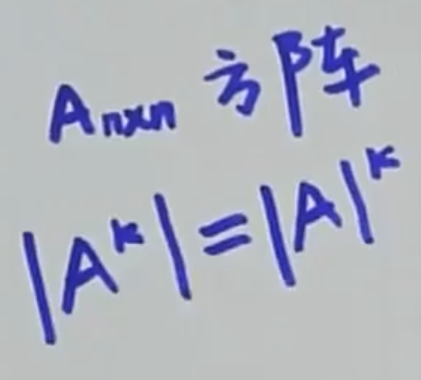 Aₙₓₙ 方阵
|Aᵏ|=|A|ᵏ